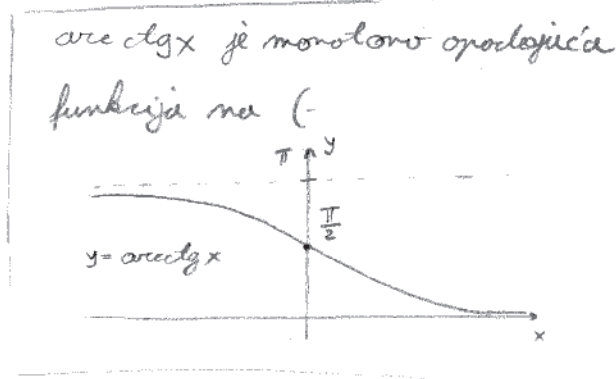 arc ctg x je monotono opadajuća
funkcija na (-
π y
π/2
y = arc ctg x
x